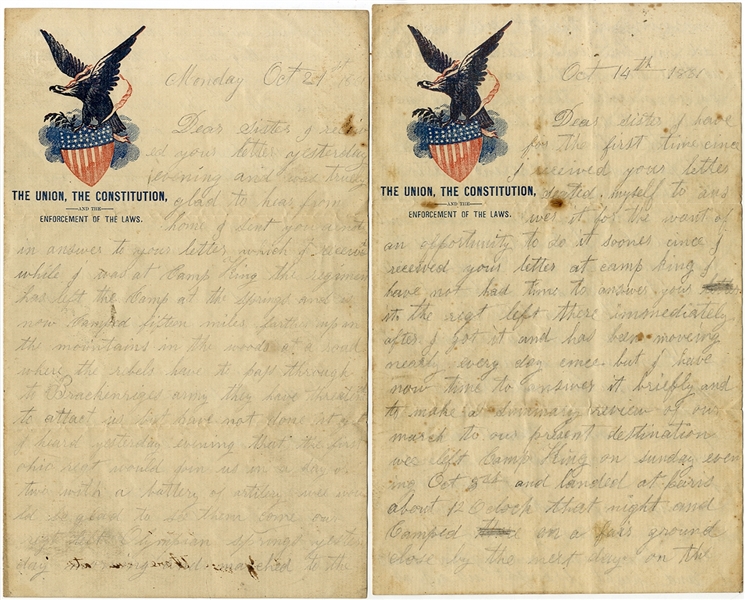 Monday Oct 21st
Dear Sister I
ed your letter yesterday
evening and was truly
THE UNION, THE CONSTITUTION,
AND THE
ENFORCEMENT OF THE LAWS.
glad to hear from
home I sent you
in answer to your letter which I
while I was at Camp King the
has left the Camp at the Springs and is
now Camped fifteen miles farther up in
the mountains in the woods at a road
where the rebels have to pass through
to army they have
to attact us but have not done it
I heard yesterday evening that the
ohio regt would join us in a day or
two with a battery of
ld be glad to see them come
Springs
day marched to the
Oct 14th
Dear Sister I have
for the first time cince
I received your letter
THE UNION, THE CONSTITUTION,
AND THE
ENFORCEMENT OF THE LAWS.
seated myself to ans
wer it for the want of
an opportunity to do it sooner cince I
received your letter at camp King I
have not had time to answer your
the regt left there immediately
after I got it and has been moveing
nearly every day cince but I have
now time to answer it briefly and
to make a review of our
march to our present destination
wee left Camp King on sunday even
ing Oct and landed at
about 12 Oclock that night and
Camped on a fair ground
close by the next day on the